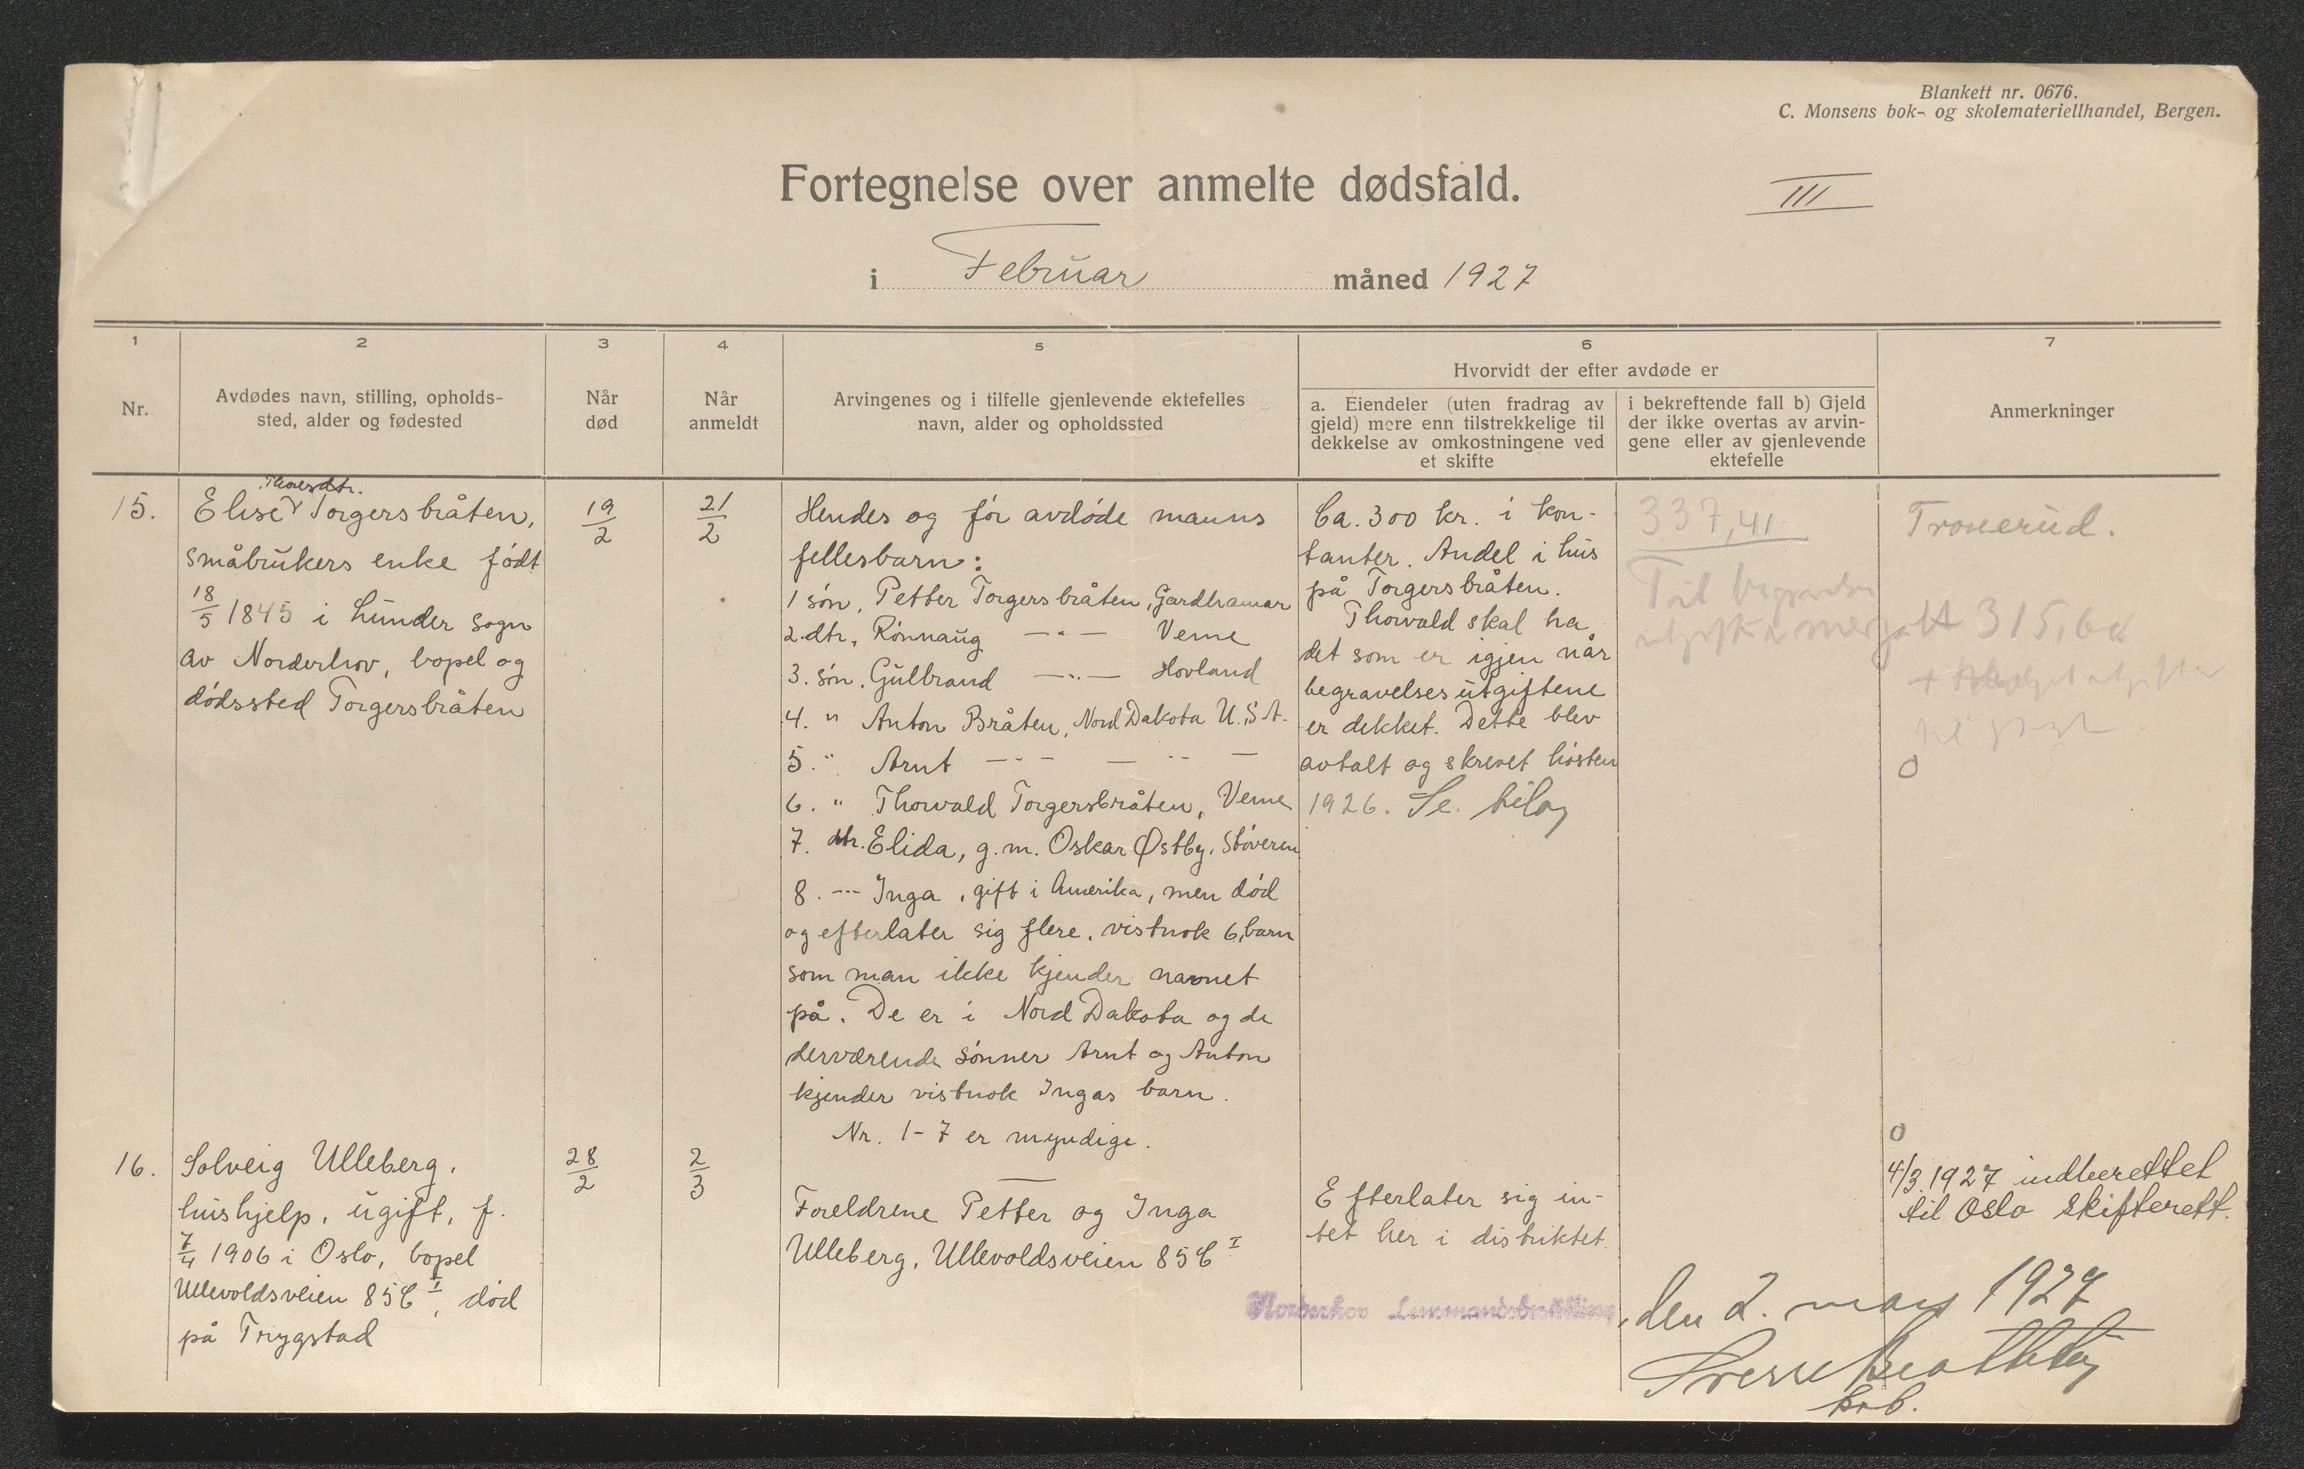 Blankett nr. 0676.
C. Monsens bok- og skolemateriellhandel, Bergen.
Fortegnelse over anmelte dødsfald.
III
i Februar måned 1927
1
Nr.
2
Avdødes navn, stilling, opholds-
sted, alder og fødested
3
Når
død
4
Når
anmeldt
5
Arvingenes og i tilfelle gjenlevende ektefelles
navn, alder og opholdssted
6
Hvorvidt der efter avdøde er
a. Eiendeler (uten fradrag av
gjeld) mere enn tilstrekkelige til
dekkelse av omkostningene ved
et skifte
i bekreftende fall b) Gjeld
der ikke overtas av arvin-
gene eller av gjenlevende
ektefelle
7
Anmerkninger
15.
Thoresdtr.
Elise Torgersbråten,
småbrukers enke født
18/5 1845 i Lunder sogn
av Norderhov, bopel og
dødssted Torgersbråten
19/2
21/2
Hendes og før avdøde manns
fellesbarn:
1 søn, Petter Torgersbråten, Gardhamar
2. dtr, Rønnaug — " — Veme
3. søn, Gulbrand — " — Hovland
4. " Anton Bråten, Nord Dakota U.S.A.
5. " Arnt — " — — " —
6. " Thorvald Torgersbråten, Veme
7. dtr. Elida, g.m. Oskar Østby, Støveren
8. --- Inga, gift i Amerika, men død
og efterlater sig flere, vistnok 6, barn
som man ikke kjender navnet
på. De er i Nord Dakota og de
derværende sønner Arnt og Anton
kjender vistnok Ingas barn.
Nr. 1-7 er myndige.
Ca. 300 kr. i kon-
tanter. Andel i hus
på Torgersbråten.
Thorvald skal ha
det som er igjen når
begravelsesutgiftene
er dekket. Dette blev
avtalt og skrevet høsten
1926. Se bilag
337,41
Til
315,60
Tronerud.
0
16.
Solveig Ulleberg,
hushjelp, ugift, f.
7/4 1906 i Oslo, bopel
Ullevoldsveien 85 C I, død
på Trygstad
28/2
2/3
Foreldrene Petter og Inga
Ulleberg, Ullevoldsveien 85 C I
Efterlater sig in-
tet her i distriktet.
0
4/3 1927 indberettet
til Oslo Skifterett.
Norderhov Lensmandsbestilling, den 2. mars 1927